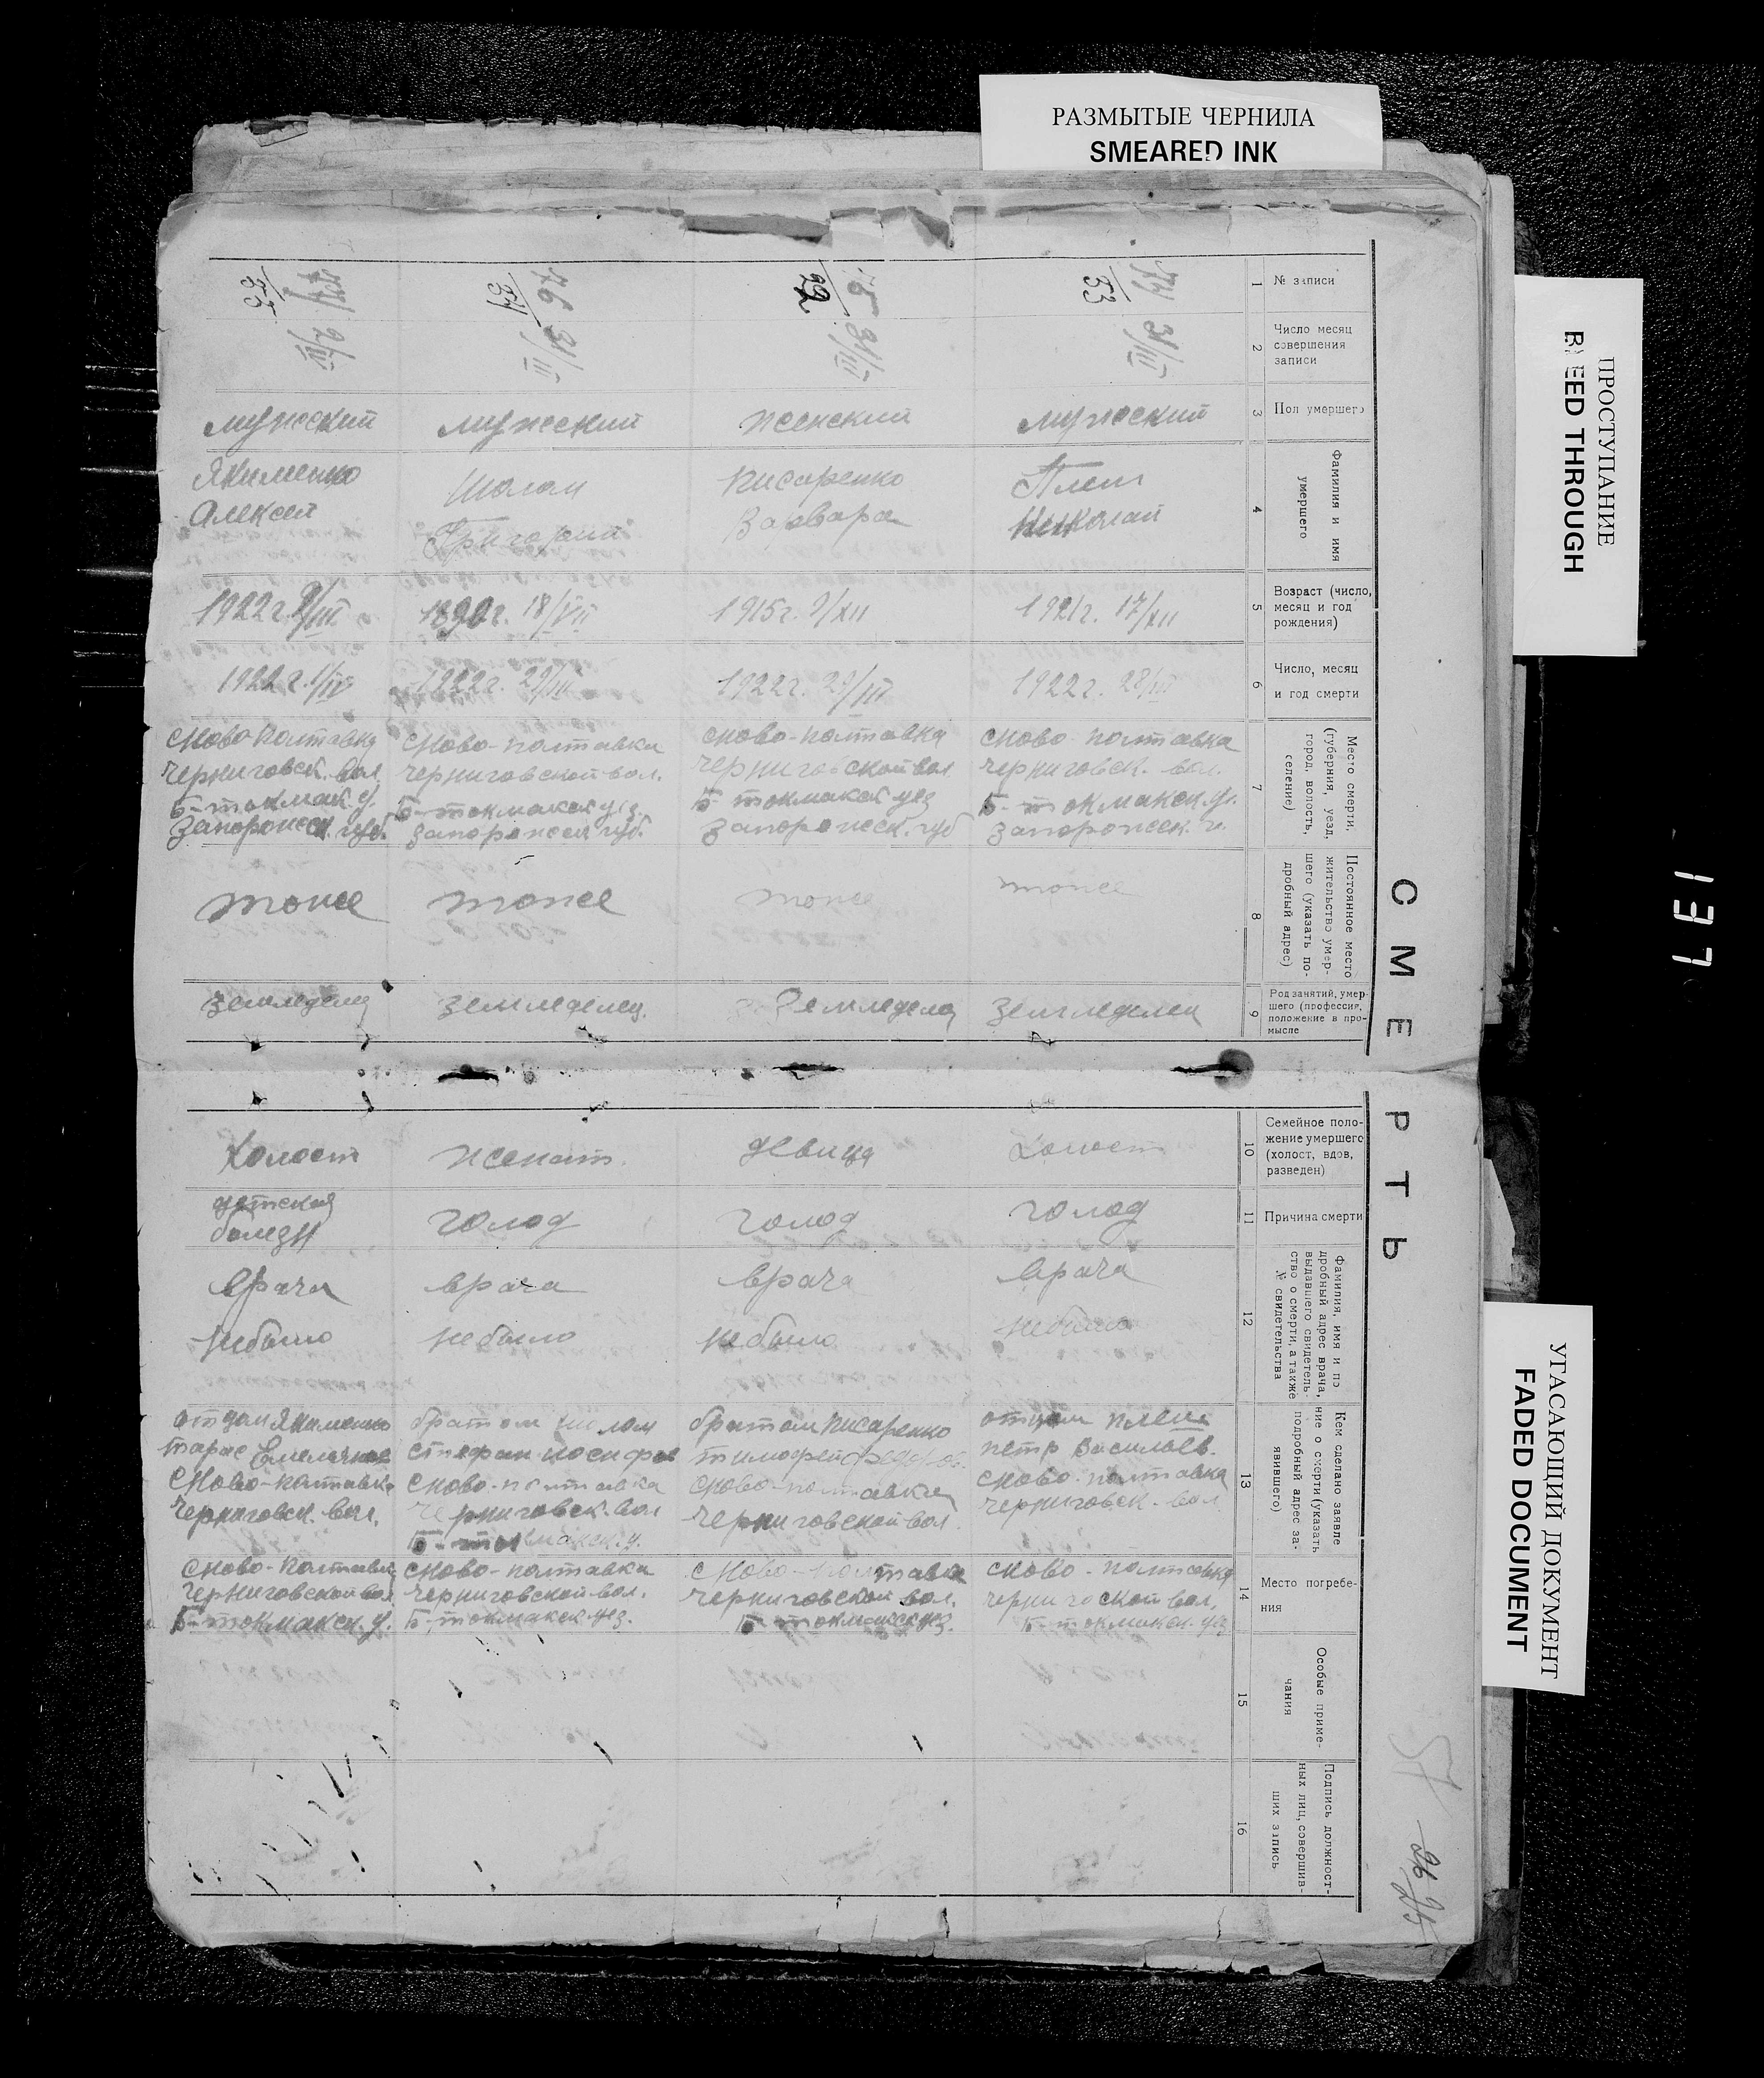 РАЗМЫТЫЕ ЧЕРНИЛА
SMEARED INK
ПРОСТУПАНИЕ
BLEED THROUGH
УГАСАЮЩИЙ ДОКУМЕНТ
FADED DOCUMENT
137
СМЕРТЬ
1
№ записи
2
Число месяц
совершения
записи
3
Пол умершего
4
Фамилия и имя
умершего
5
Возраст (число,
месяц и год
рождения)
6
Число, месяц
и год смерти
7
Место смерти,
(губерния, уезд,
город, волость,
селение)
8
Постоянное место
жительство умер-
шего (указать по-
дробный адрес)
9
Род занятий, умер-
шего (профессия,
положение в про-
мысле
10
Семейное поло-
жение умершего
(холост, вдов,
разведен)
11
Причина смерти
12
Фамилия, имя и по
дробный адрес врача,
выдавшего свидетель-
ство о смерти, а также
№ свидетельства
13
Кем сделано заявле
ние о смерти (указать
подробный адрес за-
явившего)
14
Место погребе-
ния
15
Особые приме-
чания
16
Подпись должност-
ных лиц, совершив-
ших запись
74/33
31/III
мужеский
Николай
1921г. 17/XII
1922г. 28/III
Ново-полтавка
черниговск. вол.
Б-токмакск. у.
запорожск. г.
тоже
земледелец
холост
голод
врача
небыло
отцом
петр Васильев.
Ново-полтавка
черниговск. вол.
Ново-полтавка
Б-токмакск. уез
31/III
женский
писаренко
Варвара
1915г. 9/XII
1922г. 29/III
Ново-полтавка
черниговской вол
Б-токмакск уез
запорожск. губ
тоже
земледелец
девица
голод
врача
небыло
братом писаренко
тимофей
Ново-полтавка
черниговской вол.
Ново-полтавка
черниговской вол.
Б-токмакск уез.
76/34
31/III
мужеский
Шолом
Григорий
1890г. 18/VII
1922г. 29/III
Ново-полтавка
черниговской вол.
Б-токмакск уез.
запорожск губ.
тоже
земледелец.
женат.
голод
врача
небыло
братом шолом
стефан иосифов
Ново-полтавка
черниговск. вол
Б-токмакск. у.
Ново-полтавка
черниговской вол.
Б-токмакск. уез.
77/35
2/IV
мужеский
Якименко
Алексей
1922г. 9/III
1922г. 1/IV
Ново полтавка
черниговск. вол.
Б-токмак. у.
запорожск. губ.
тоже
земледелец
холост
детская
болезн
врача
небыло
отцом Якименко
тарас
Ново-полтавка
черниговск. вол.
Ново-полтавка
черниговской вол
Б-токмакск. у.
57
26
25